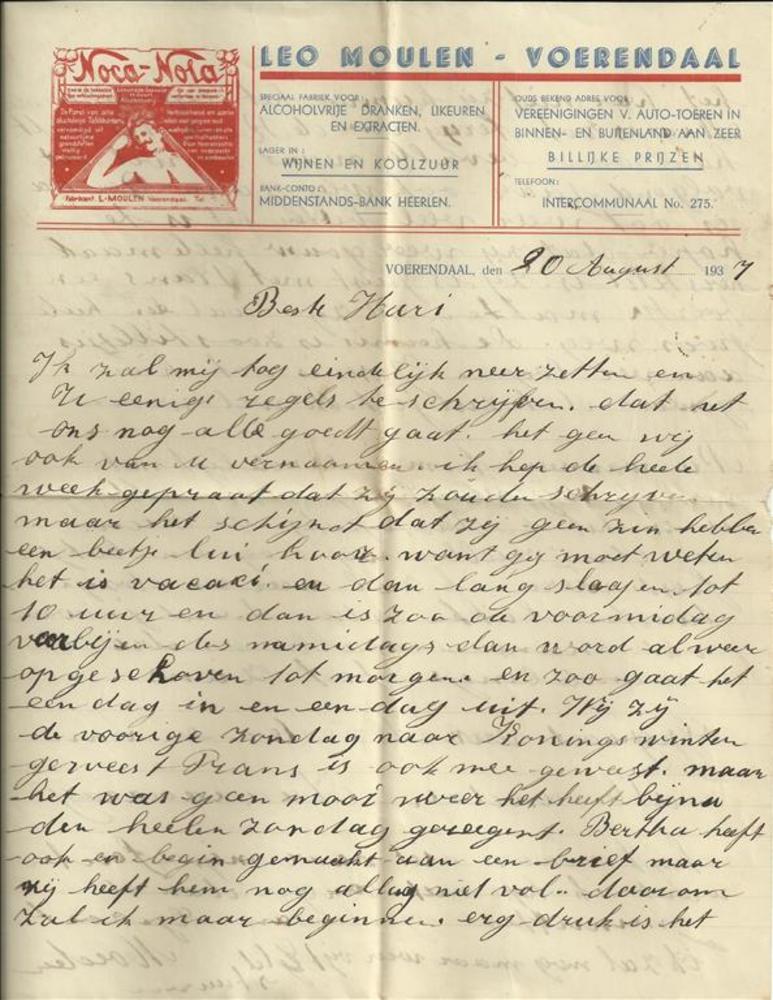 Noca-Nola
Fabrikant L. MOULEN Voerendaal. Tel
LEO MOULEN - VOERENDAAL
SPECIAAL FABRIEK VOOR:
ALCOHOLVRIJE DRANKEN, LIKEUREN
EN EXTRACTEN.
LAGER IN:
WIJNEN EN KOOLZUUR
BANK-CONTO:
MIDDENSTANDS-BANK HEERLEN.
OUDS BEKEND ADRES VOOR
VEREENIGINGEN V. AUTO-TOEREN IN
BINNEN- EN BUITENLAND AAN ZEER
BILLIJKE PRIJZEN
TELEFOON:
INTERCOMMUNAAL No. 275.
VOERENDAAL, den 20 Augustus 1937
Beste Hari
Ik zal mij tog eindelijk neer zetten en
U eenige regels te schrijven. dat het
ons nog alle goedt gaat. het geen wij
ook van U vernaamen. ik heb de heele
week gepraat dat zij zouden schrijven
maar het schijnt dat zij geen zin hebben
een beetje lui hoor. want gij moet weten
het is vacaci. en dan lang slaapen tot
10 uur en dan is zoo de voormidag
voorbij en des namidags dan word alweer
opgeschoven tot morgen. en zoo gaat het
een dag in en een dag uit. Wij zij
de voorige zondag naar Konings winter
geweest Frans is ook mee geweest. maar
het was geen mooi weer het heeft bijna
den heelen zondag geregent. Bertha heeft
ook en begin gemaakt aan een brief maar
zij heeft hem nog altijd niet vol. daarom
zal ik maar beginnen. erg druk is het